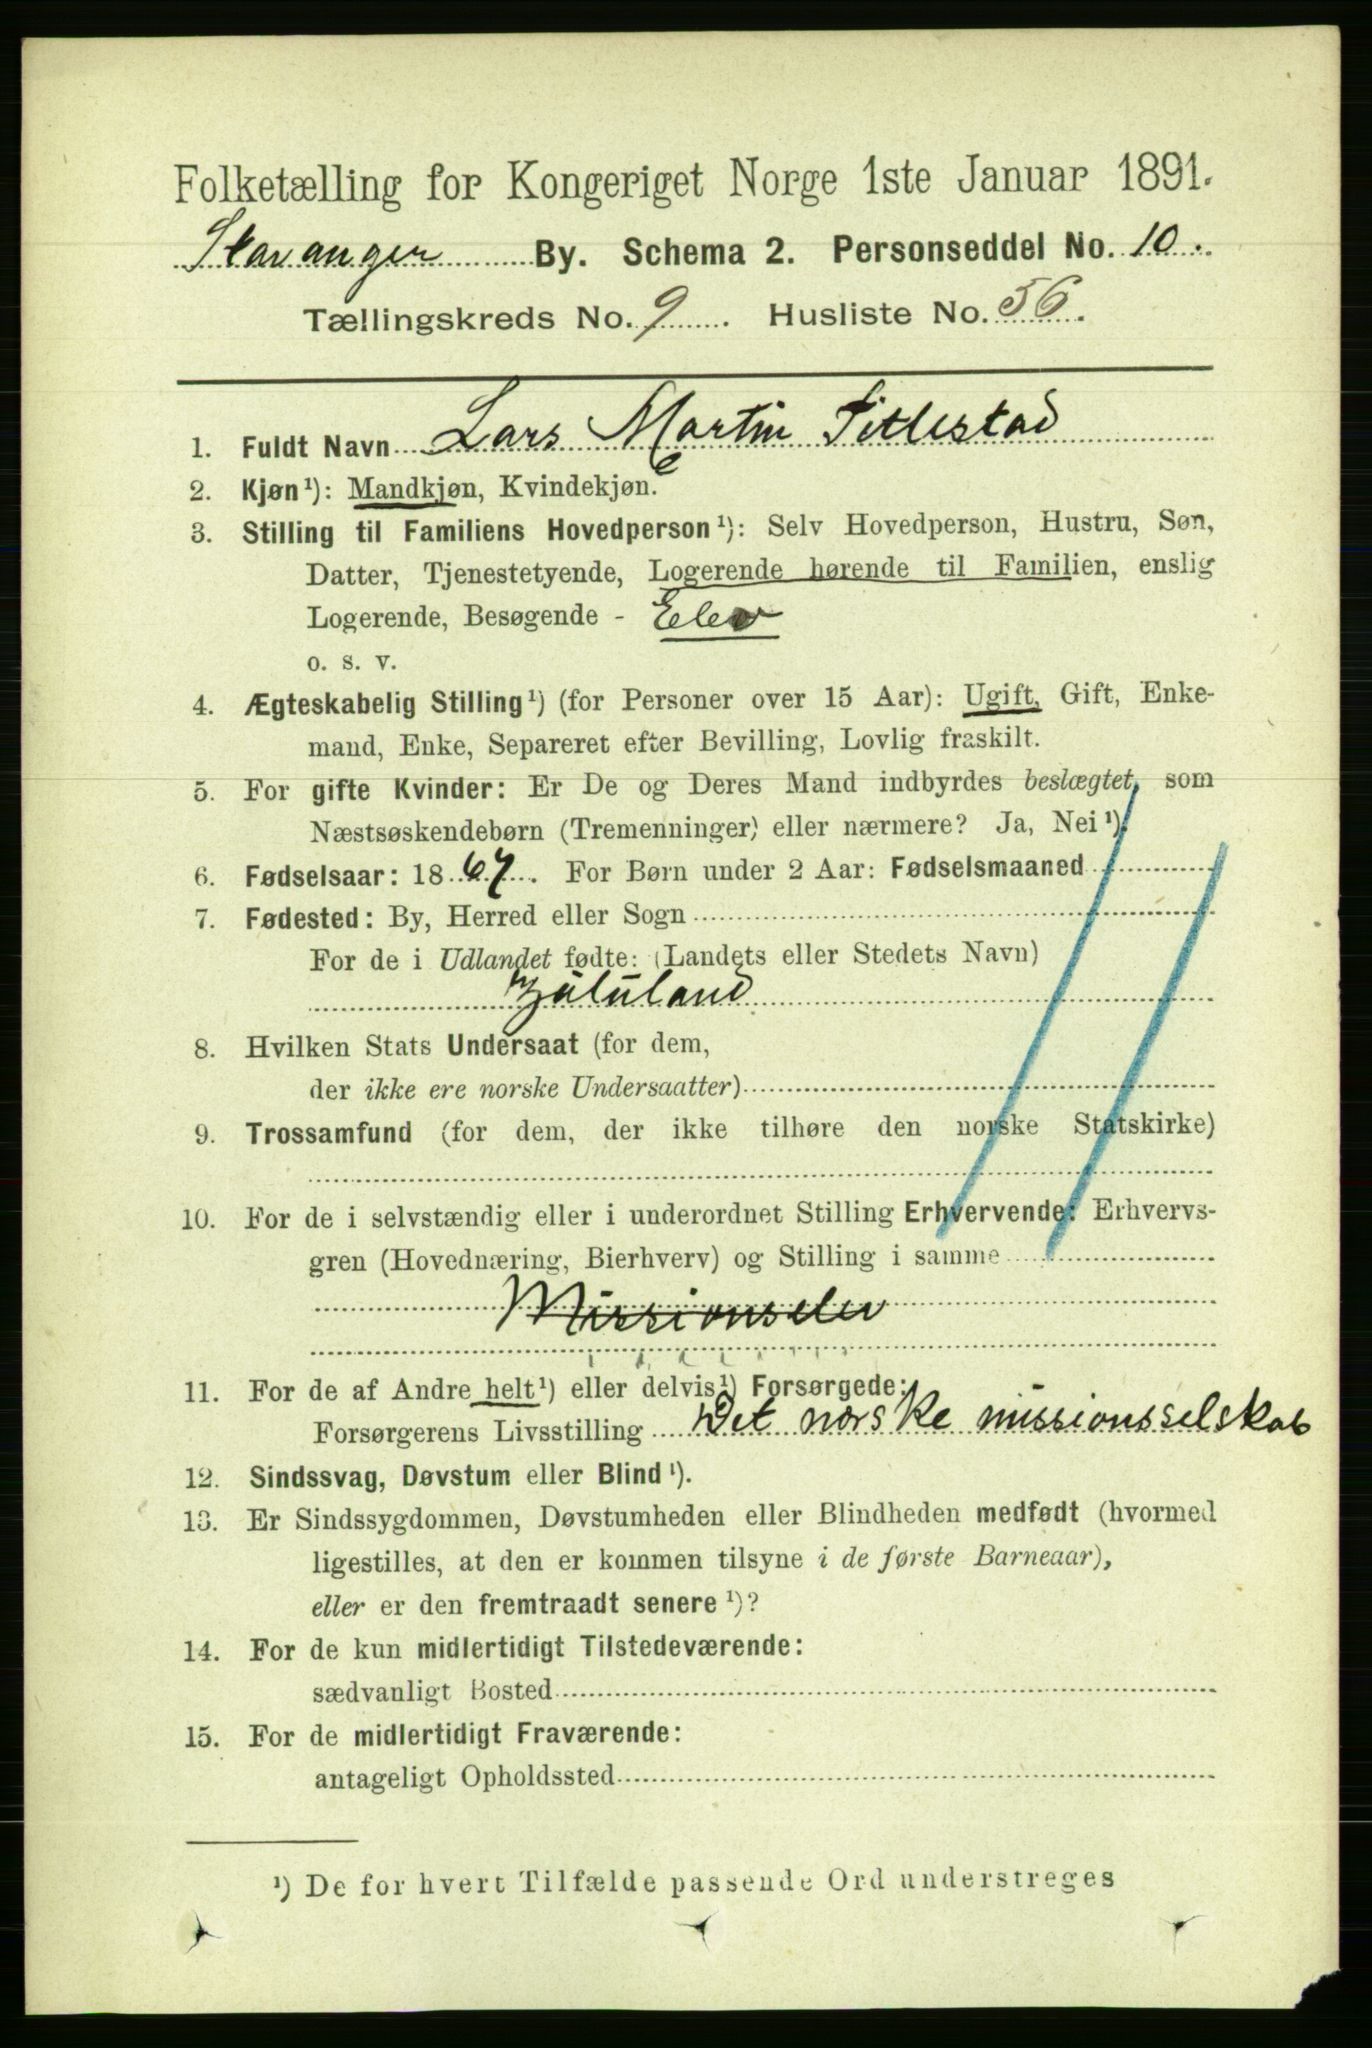 Folketælling for Kongeriget Norge 1ste Januar 1891.
Stavanger By. Schema 2. Personseddel No. 10.
Tællingskreds No. 9. Husliste No. 56.
1. Fuldt Navn Lars Martin Titlestad
2. Kjøn ¹): Mandkjøn, Kvindekjøn.
3. Stilling til Familiens Hovedperson ¹): Selv Hovedperson, Hustru, Søn,
Datter, Tjenestetyende, Logerende hørende til Familien, enslig
Logerende, Besøgende - Elev
o. s. v.
4. Ægteskabelig Stilling ¹) (for Personer over 15 Aar): Ugift, Gift, Enke-
mand, Enke, Separeret efter Bevilling, Lovlig fraskilt.
5. For gifte Kvinder: Er De og Deres Mand indbyrdes beslægtet, som
Næstsøskendebørn (Tremenninger) eller nærmere? Ja, Nei ¹).
6. Fødselsaar: 1867. For Børn under 2 Aar: Fødselsmaaned
7. Fødested: By, Herred eller Sogn
For de i Udlandet fødte: (Landets eller Stedets Navn)
Zululand
8. Hvilken Stats Undersaat (for dem,
der ikke ere norske Undersaatter)
9. Trossamfund (for dem, der ikke tilhøre den norske Statskirke)
10. For de i selvstændig eller i underordnet Stilling Erhvervende: Erhvervs-
gren (Hovednæring, Bierhverv) og Stilling i samme
Missionselev
11. For de af Andre helt ¹) eller delvis ¹) Forsørgede:
Forsørgerens Livsstilling Det norske missionsselskab
12. Sindssvag, Døvstum eller Blind ¹).
13. Er Sindssygdommen, Døvstumheden eller Blindheden medfødt (hvormed
ligestilles, at den er kommen tilsyne i de første Barneaar),
eller er den fremtraadt senere ¹)?
14. For de kun midlertidigt Tilstedeværende:
sædvanligt Bosted
15. For de midlertidigt Fraværende:
antageligt Opholdssted
¹) De for hvert Tilfælde passende Ord understreges